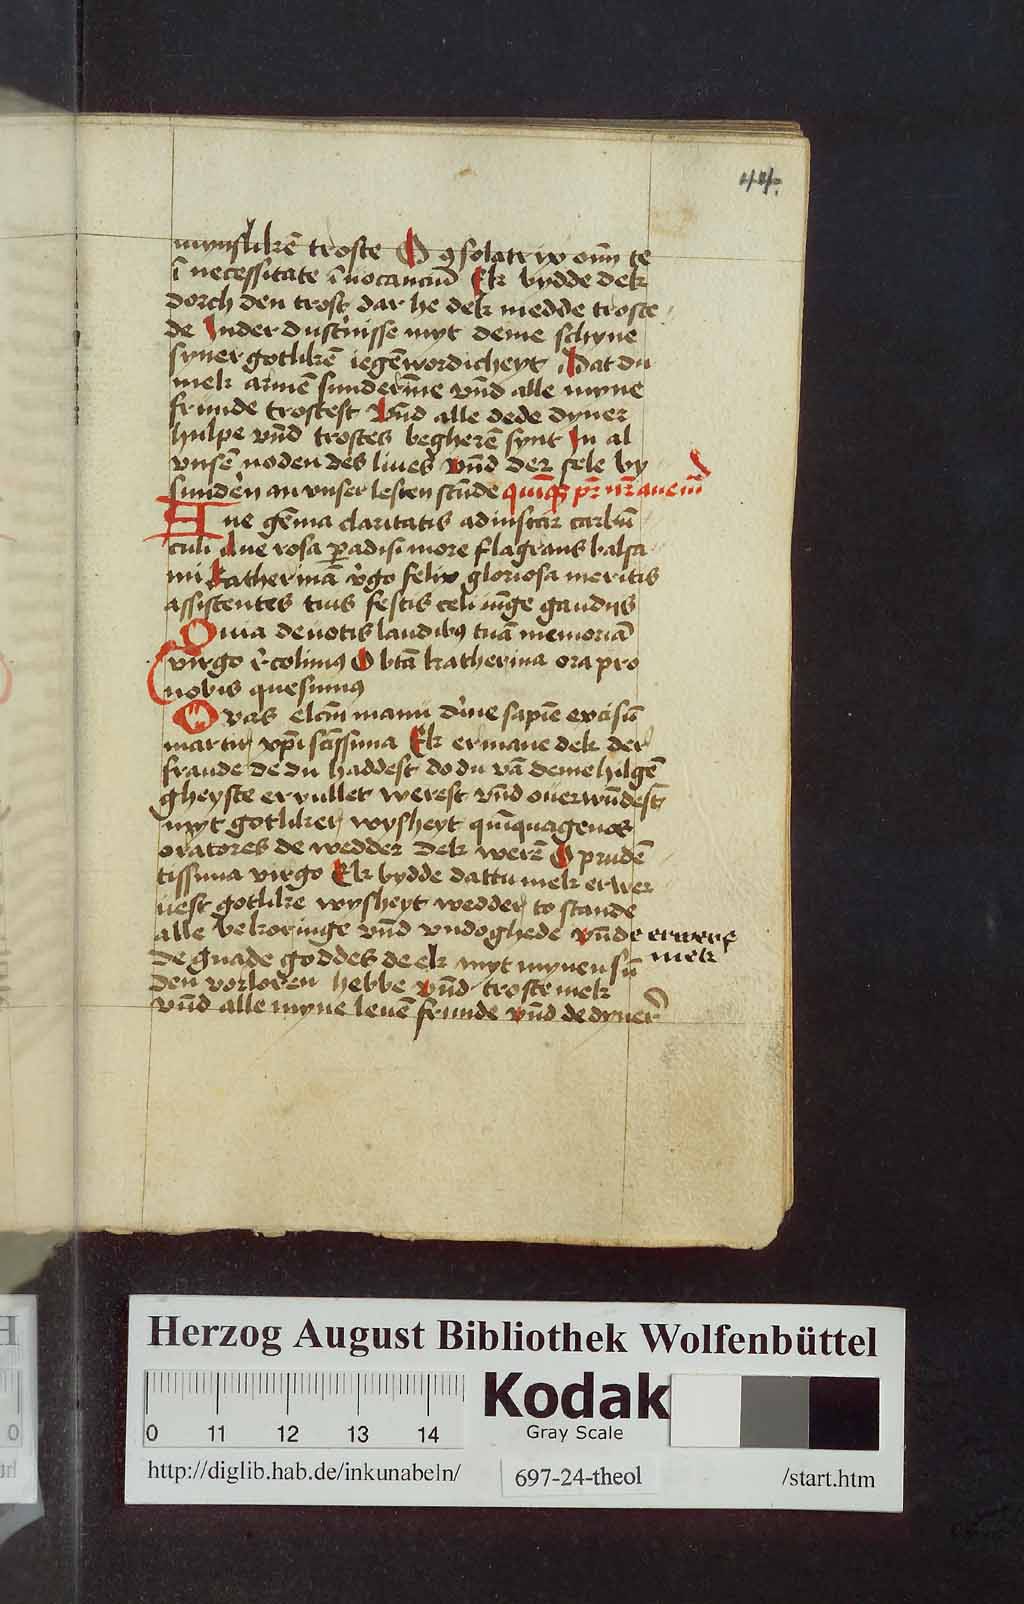 44.
mynslikē troste O ꝯsolatrix oīm te
ī necessitate īuocanciū Ek bydde dek
dorch den trost dar he dek medde troste
de In der dusternisse myt deme schyne
syner gotlikē iegēwordicheyt Dat du
mek armē sunderīne vn̄d alle myne
frunde trostest Vn̄d alle dede dyner
hulpe vn̄d trostes begherē synt In al
vnsē noden des liues vn̄d der sele by
sundern an vnser lesten stūde
Aue gēma claritatis ad instar carbū
culi Aue rosa ꝑadisi more flagrans balsa
mi Katherinā v̓go felix gloriosa meritis
assistentes tuis festis celi iūge gaudijs
Quia deuotis laudibꝰ tuā memoriā
virgo r̓colimꝰ O btā katherina ora pro
nobis quesumꝰ
O vas elcm̄ manu d'ine sapīe excisū
martir xpī scīssima Ek ermane dek der
fraude de du haddest do du vā deme hilgē
gheyste ervullet werest vn̄d ouerwūdest
myt gotliker wysheyt quīquagenos
oratores de wedder dek werē O prudē
tissima virgo Ek bydde dattu mek erwer
uest gotlike wysheyt wedder to stande
alle bekoringe vn̄d vndoghede vn̄de erwerf
mek
de gnade goddes de ek myt mynen sū
den vorloren hebbe vn̄d troste mek
vn̄d alle myne leuē frunde vn̄d de dyner
Herzog August Bibliothek Wolfenbüttel
0 11 12 13 14
Kodak
Gray Scale
http://diglib.hab.de/inkunabeln/ 697-24-theol /start.htm